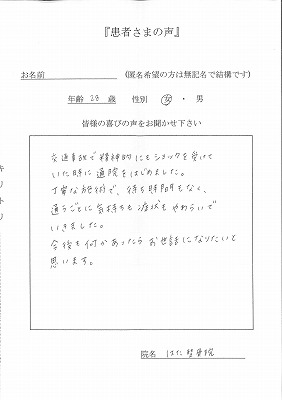 『患者さまの声』
お名前 (匿名希望の方は無記名で結構です)
年齢 28 歳 性別 女 ・ 男
皆様の喜びの声をお聞かせ下さい
交通事故で精神的にもショックを受けて
いた時に通院をはじめました。
丁寧な施術で、待ち時間もなく、
通うごとに気持ちも症状もやわらいで
いきました。
今後も何かあったらお世話になりたいと
思います。
キリトリ
院名 はた整骨院